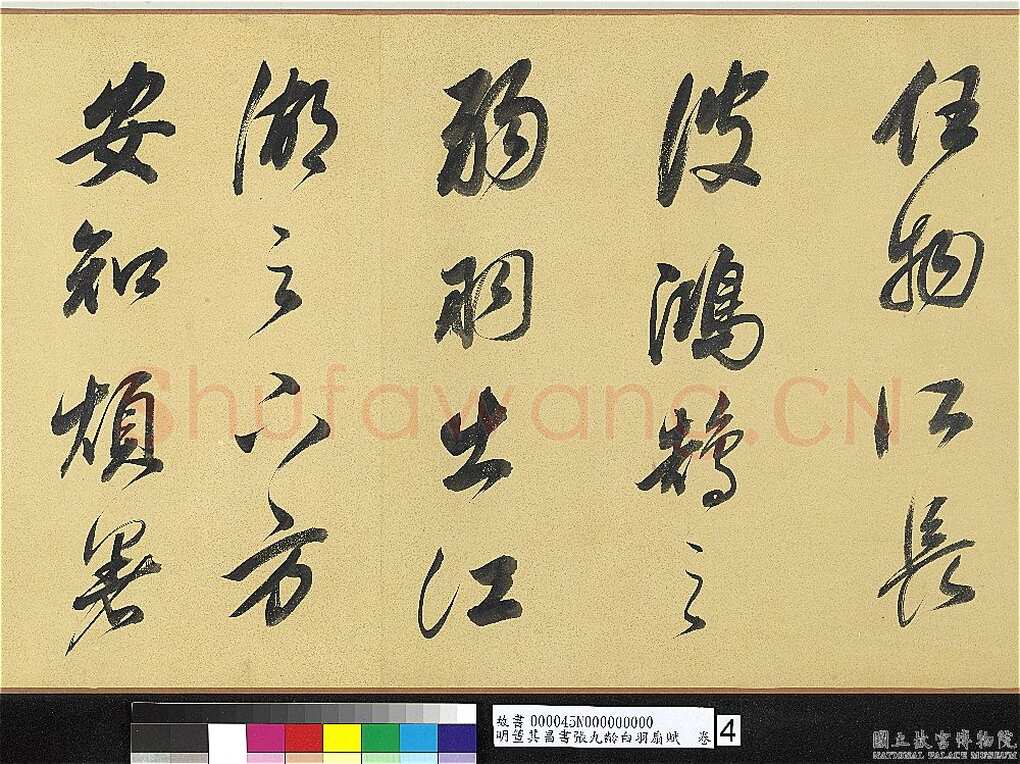 任物所長
彼鴻鵠之
弱羽出江
湖之下方
安知煩暑
Shufawang.CN
故書 000045N000000000
明董其昌書張九齡白羽扇賦 卷
4
國立故宮博物院
NATIONAL PALACE MUSEUM